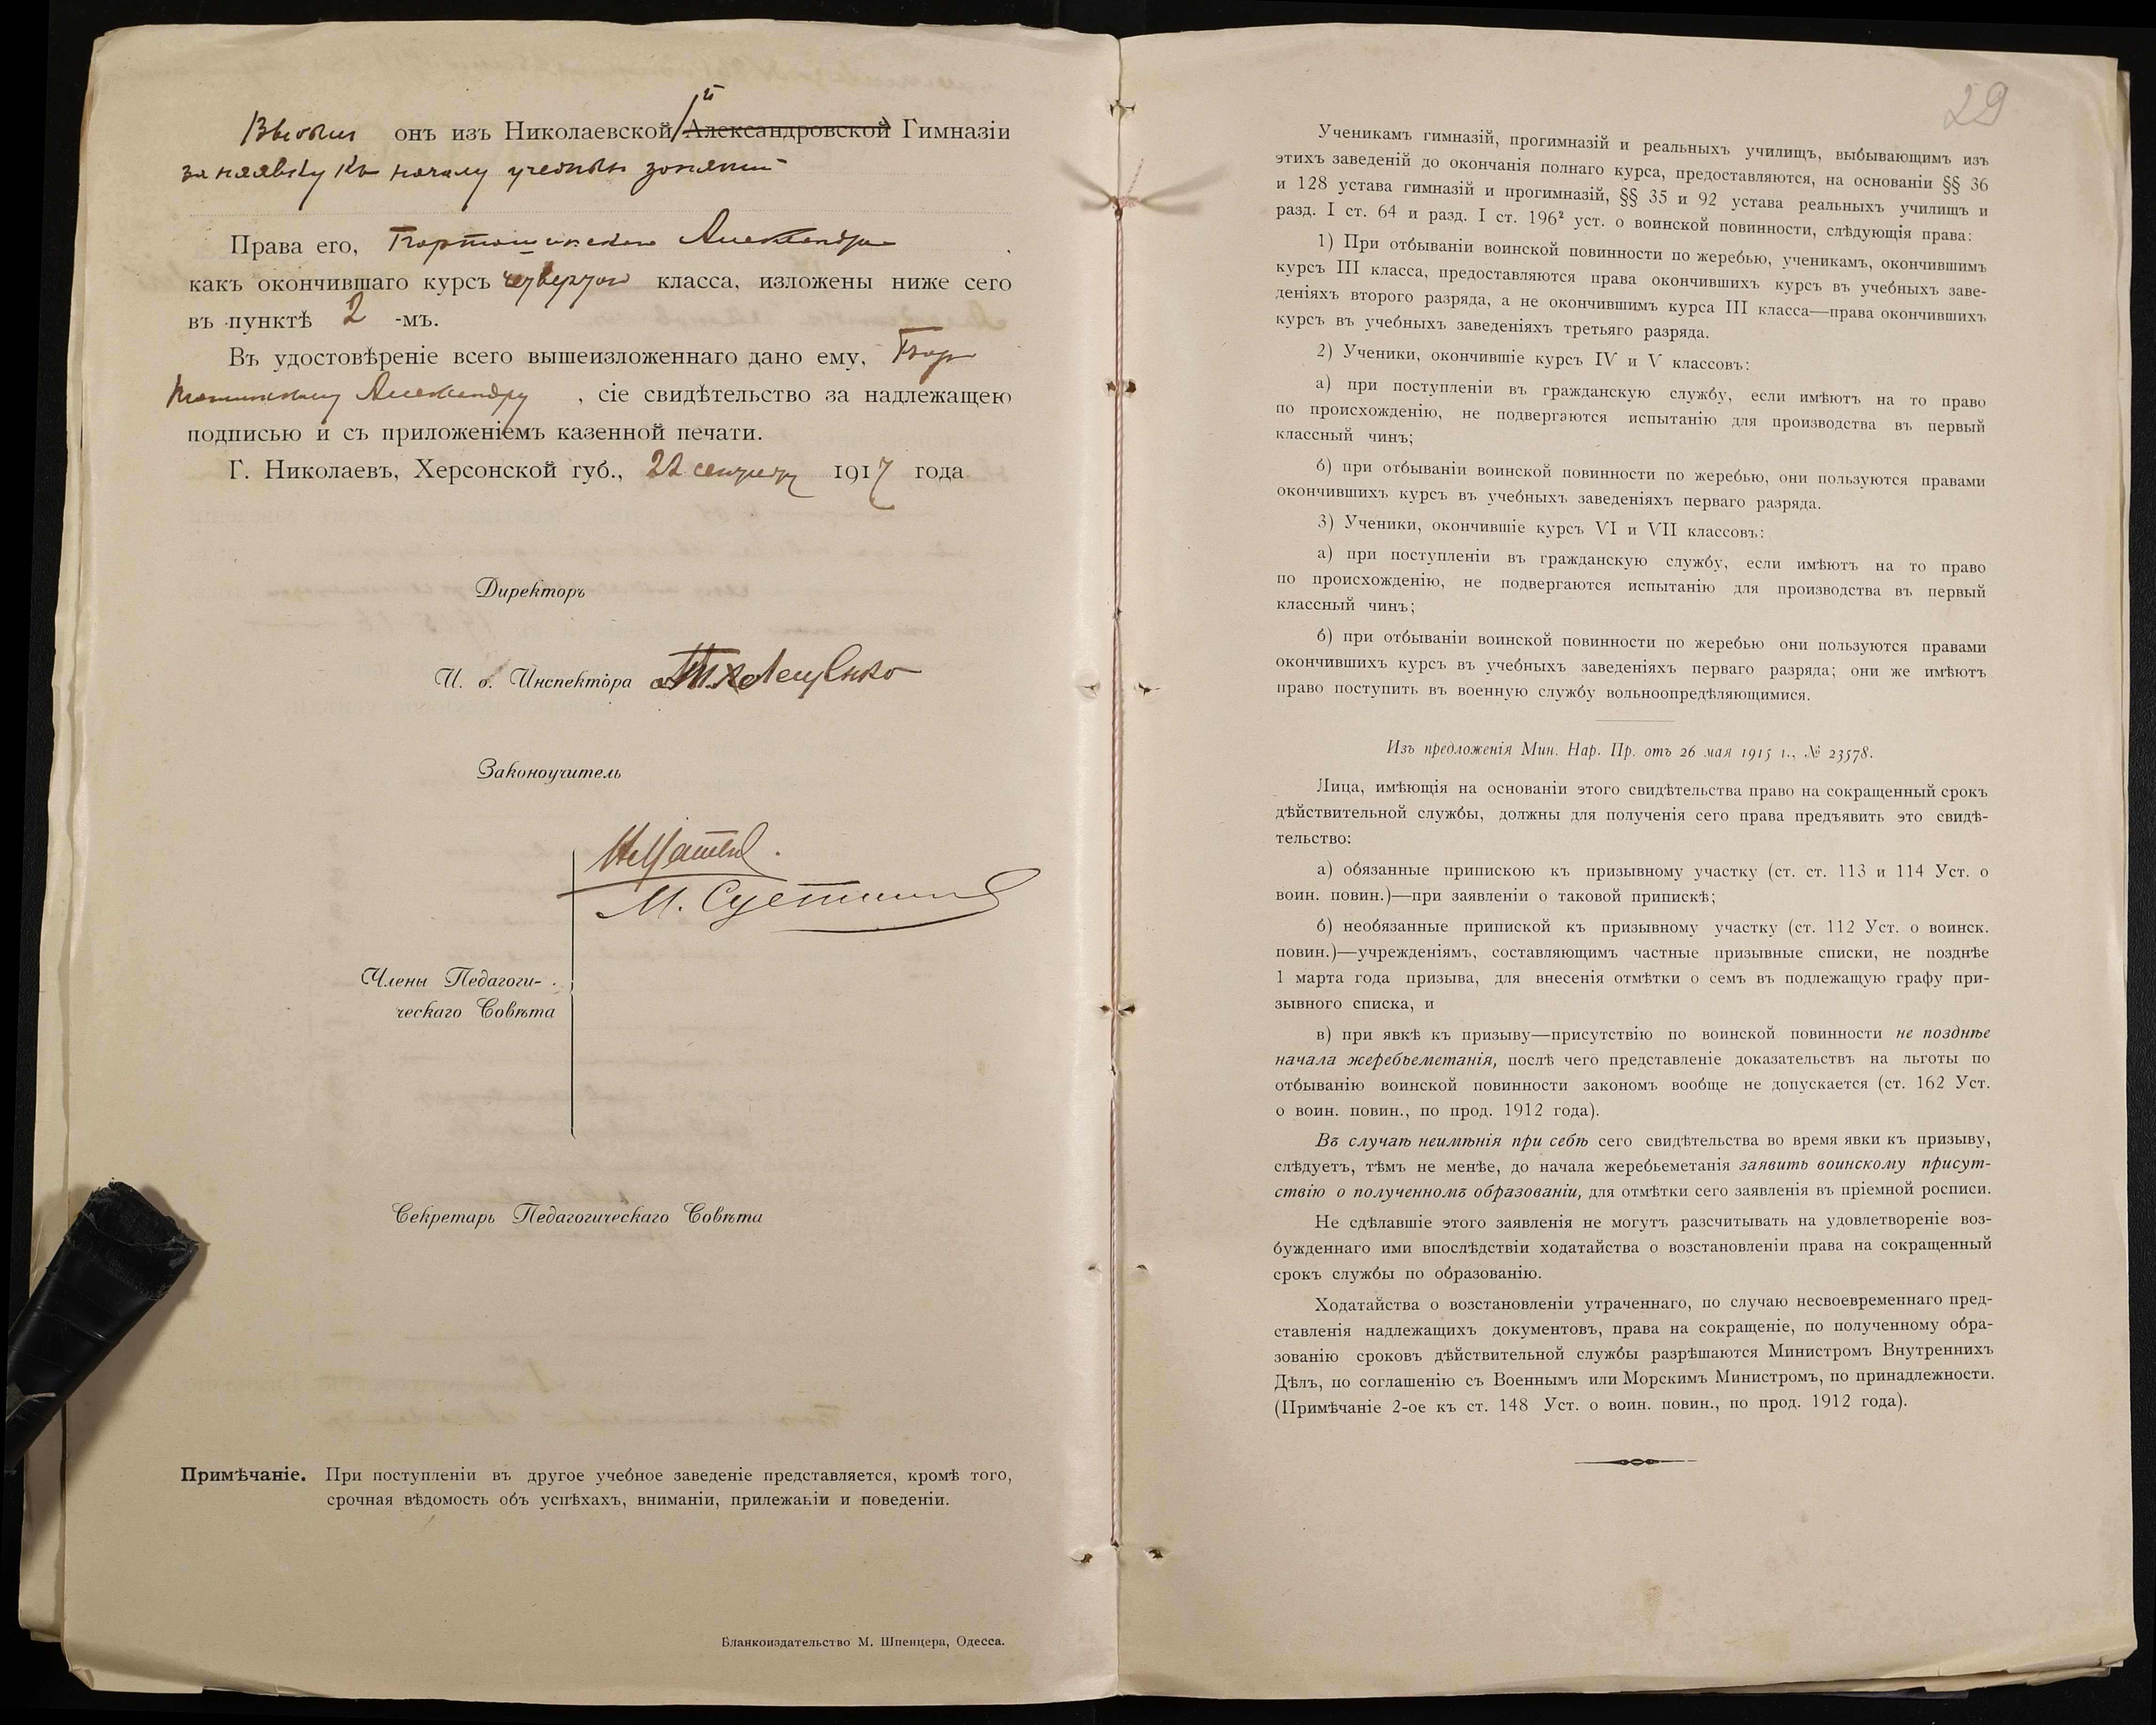 Выбылъ онъ изъ Николаевской Александровской Гимназіи
за неявку къ началу учебныхъ занятій
Права его, Александра
какъ окончившаго курсъ четвертаго класса, изложены ниже сего
въ пунктѣ 2 -мъ.
Въ удостовѣреніе всего вышеизложеннаго дано ему,
Александру, сіе свидѣтельство за надлежащею
подписью и съ приложеніемъ казенной печати.
Г. Николаевъ, Херсонской губ., 22 сентября 1917 года
Директоръ
И. о. Инспектора
Законоучитель
Члены Педагоги-
ческаго Совѣта
Секретарь Педагогическаго Совѣта
Примѣчаніе. При поступленіи въ другое учебное заведеніе представляется, кромѣ того,
срочная вѣдомость объ успѣхахъ, вниманіи, прилежаніи и поведеніи.
Бланкоиздательство М. Шпенцера, Одесса.
29
Ученикамъ гимназій, прогимназій и реальныхъ училищъ, выбывающимъ изъ
этихъ заведеній до окончанія полнаго курса, предоставляются, на основаніи §§ 36
и 128 устава гимназій и прогимназій, §§ 35 и 92 устава реальныхъ училищъ и
разд. I ст. 64 и разд. I ст. 196² уст. о воинской повинности, слѣдующія права:
1) При отбываніи воинской повинности по жеребью, ученикамъ, окончившимъ
курсъ III класса, предоставляются права окончившихъ курсъ въ учебныхъ заве-
деніяхъ второго разряда, а не окончившимъ курса III класса—права окончившихъ
курсъ въ учебныхъ заведеніяхъ третьяго разряда.
2) Ученики, окончившіе курсъ IV и V классовъ:
а) при поступленіи въ гражданскую службу, если имѣютъ на то право
по происхожденію, не подвергаются испытанію для производства въ первый
классный чинъ;
б) при отбываніи воинской повинности по жеребью, они пользуются правами
окончившихъ курсъ въ учебныхъ заведеніяхъ перваго разряда.
3) Ученики, окончившіе курсъ VI и VII классовъ:
а) при поступленіи въ гражданскую службу, если имѣютъ на то право
по происхожденію, не подвергаются испытанію для производства въ первый
классный чинъ;
б) при отбываніи воинской повинности по жеребью они пользуются правами
окончившихъ курсъ въ учебныхъ заведеніяхъ перваго разряда; они же имѣютъ
право поступить въ военную службу вольноопредѣляющимися.
Изъ предложенія Мин. Нар. Пр. отъ 26 мая 1915 г., № 23578.
Лица, имѣющія на основаніи этого свидѣтельства право на сокращенный срокъ
дѣйствительной службы, должны для полученія сего права предъявить это свидѣ-
тельство:
а) обязанные припискою къ призывному участку (ст. ст. 113 и 114 Уст. о
воин. повин.)—при заявленіи о таковой припискѣ;
б) необязанные припиской къ призывному участку (ст. 112 Уст. о воинск.
повин.)—учрежденіямъ, составляющимъ частные призывные списки, не позднѣе
1 марта года призыва, для внесенія отмѣтки о семъ въ подлежащую графу при-
зывного списка, и
в) при явкѣ къ призыву—присутствію по воинской повинности не позднѣе
начала жеребьеметанія, послѣ чего представленіе доказательствъ на льготы по
отбыванію воинской повинности закономъ вообще не допускается (ст. 162 Уст.
о воин. повин., по прод. 1912 года).
Въ случаѣ неимѣнія при себѣ сего свидѣтельства во время явки къ призыву,
слѣдуетъ, тѣмъ не менѣе, до начала жеребьеметанія заявить воинскому присут-
ствію о полученномъ образованіи, для отмѣтки сего заявленія въ пріемной росписи.
Не сдѣлавшіе этого заявленія не могутъ разсчитывать на удовлетвореніе воз-
бужденнаго ими впослѣдствіи ходатайства о возстановленіи права на сокращенный
срокъ службы по образованію.
Ходатайства о возстановленіи утраченнаго, по случаю несвоевременнаго пред-
ставленія надлежащихъ документовъ, права на сокращеніе, по полученному обра-
зованію сроковъ дѣйствительной службы разрѣшаются Министромъ Внутреннихъ
Дѣлъ, по соглашенію съ Военнымъ или Морскимъ Министромъ, по принадлежности.
(Примѣчаніе 2-ое къ ст. 148 Уст. о воин. повин., по прод. 1912 года).